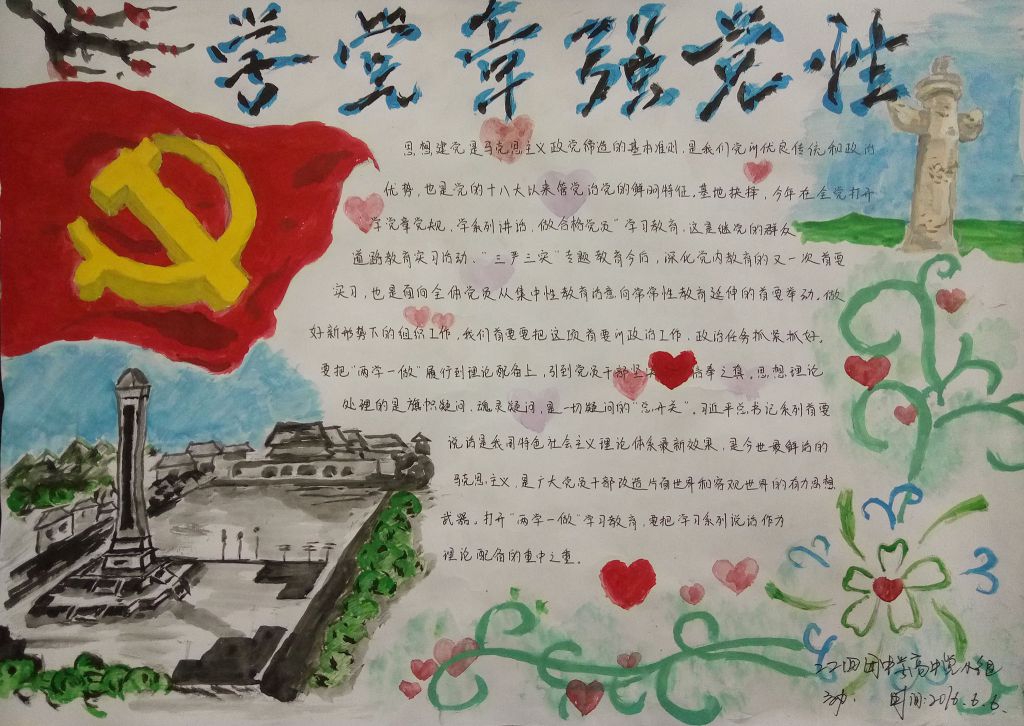 学党章强党性
思想建党是马克思主义政党缔造的基本准则,是我们党的优良传统和政治
优势,也是党的十八大以来管党治党的鲜明特征。基地抉择,今年在全党打开
"学党章党规、学系列讲话,做合格党员"学习教育,这是继党的群众
道路教育实习活动、"三严三实"专题教育今后,深化党内教育的又一次首要
实习,也是面向全体党员从集中性教育活意向常常性教育延伸的首要举动。做
好新形势下的组织工作,我们首要要把这项首要的政治工作、政治任务抓紧抓好。
要把"两学一做"履行到理论配备上,引到党员干部坚 信奉之旗。思想理论
处理的是旗帜疑问、魂灵疑问,是一切疑问的"总开关"。习近平总书记系列首要
说话是我国特色社会主义理论体系最新效果,是今世最鲜活的
马克思主义,是广大党员干部改造片面世界和客观世界的有力思想
武器。打开"两学一做"学习教育,要把学习系列说话作为
理论配备的重中之重。
3
高中党小组
时间:2016.6.6.